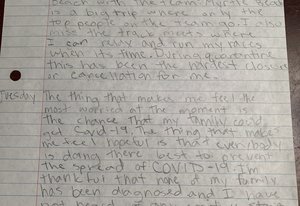 beach with the team. Myrtle Beach
is a big trip where only the
top people on the team go. I also
miss the track meets where
I can relax and run my races
when its time. During quarantine
this has been the hardest closure
or cancellation for me.
Tuesday The thing that makes me feel the
most worried at the moment is
the chance that my family could
get Covid-19. The thing that makes
me feel hopeful is that everybody
is doing there best to prevent
the spread of COVID-19. I'm
thankful that none of my family
has been diagnosed and I have
not heard